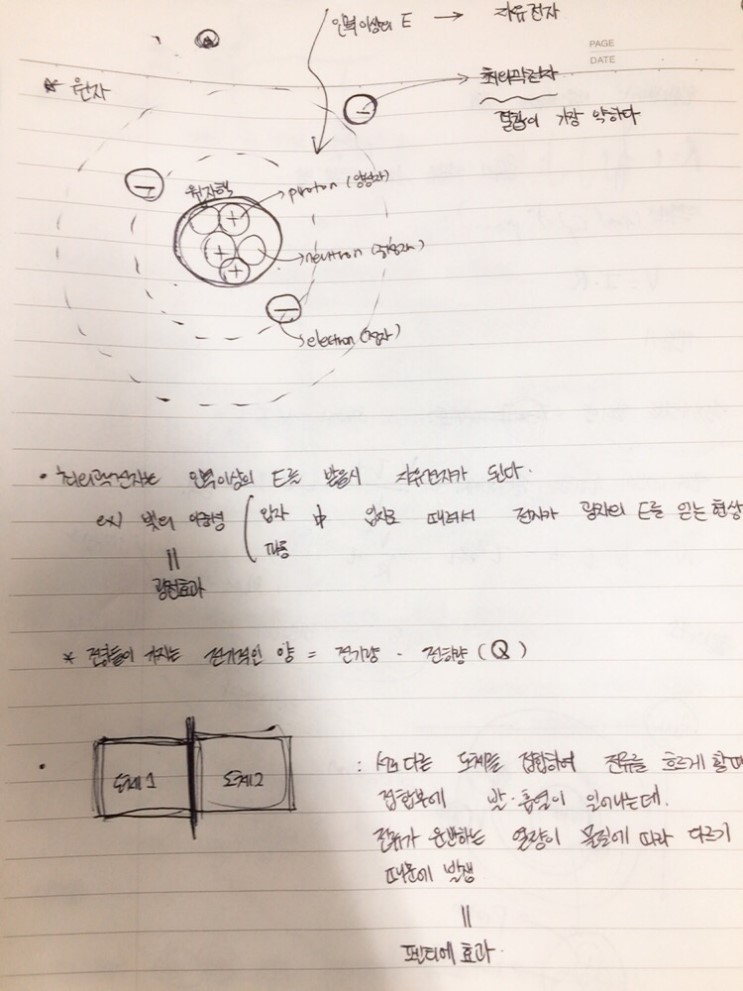 인력이상의 E → 자유전자
PAGE
DATE
* 원자
최외곽전자
결합이 가장 약하다
원자핵
proton (양성자)
neutron (중성자)
electron (전자)
• 최외곽전자는 인력이상의 E를 받을시 자유전자가 된다.
ex) 빛의 이중성 입자 中 입자로 때려서 전자가 광자의 E를 얻는 현상
파동
||
광전효과
* 전하들이 가지는 전기적인 양 = 전기량 · 전하량 (Q)
• 도체1 도체2 : 서로 다른 도체를 접합하여 전류를 흐르게 할때
접합부에 발·흡열이 일어나는데.
전류가 운반하는 열량이 물질에 따라 다르기
때문에 발생
||
펠티에 효과.